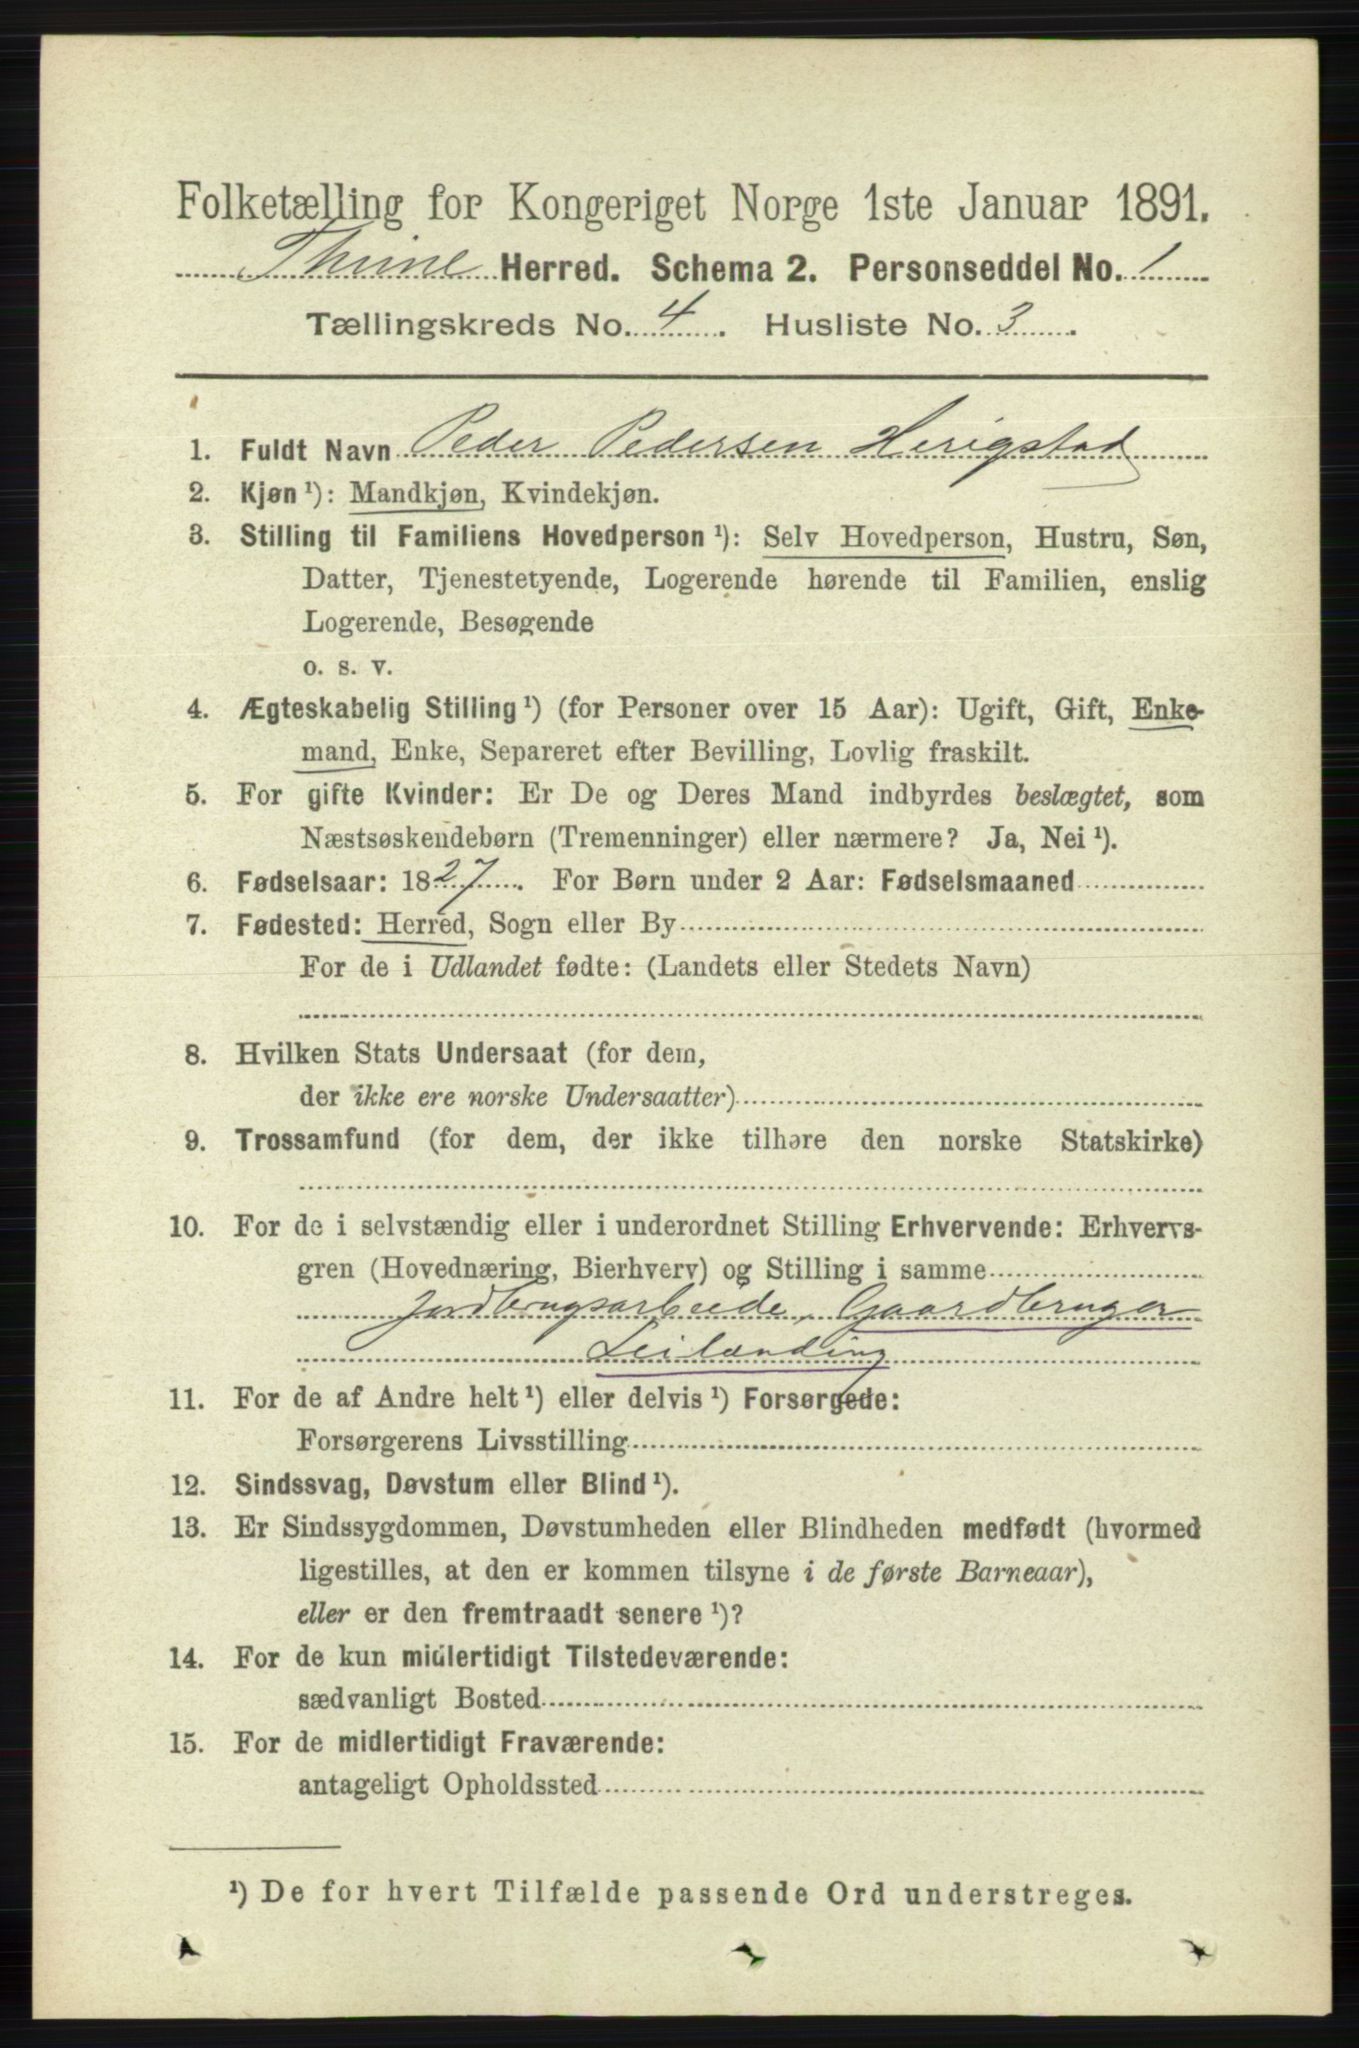 Folketælling for Kongeriget Norge 1ste Januar 1891.
Thime Herred. Schema 2. Personseddel No. 1
Tællingskreds No. 4. Husliste No. 3.
1. Fuldt Navn Peder Pedersen Herigstad
2. Kjøn ¹): Mandkjøn, Kvindekjøn.
3. Stilling til Familiens Hovedperson ¹): Selv Hovedperson, Hustru, Søn,
Datter, Tjenestetyende, Logerende hørende til Familien, enslig
Logerende, Besøgende
o. s. v.
4. Ægteskabelig Stilling ¹) (for Personer over 15 Aar): Ugift, Gift, Enke-
mand, Enke, Separeret efter Bevilling, Lovlig fraskilt.
5. For gifte Kvinder: Er De og Deres Mand indbyrdes beslægtet, som
Næstsøskendebørn (Tremenninger) eller nærmere? Ja, Nei ¹).
6. Fødselsaar: 1827. For Børn under 2 Aar: Fødselsmaaned
7. Fødested: Herred, Sogn eller By
For de i Udlandet fødte: (Landets eller Stedets Navn)
8. Hvilken Stats Undersaat (for dem,
der ikke ere norske Undersaatter)
9. Trossamfund (for dem, der ikke tilhøre den norske Statskirke)
10. For de i selvstændig eller i underordnet Stilling Erhvervende: Erhvervs-
gren (Hovednæring, Bierhverv) og Stilling i samme
Jordbrugsarbeide, Gaardbruger
Leilænding
11. For de af Andre helt ¹) eller delvis ¹) Forsørgede:
Forsørgerens Livsstilling
12. Sindssvag, Døvstum eller Blind ¹).
13. Er Sindssygdommen, Døvstumheden eller Blindheden medfødt (hvormed
ligestilles, at den er kommen tilsyne i de første Barneaar),
eller er den fremtraadt senere ¹)?
14. For de kun midlertidigt Tilstedeværende:
sædvanligt Bosted
15. For de midlertidigt Fraværende:
antageligt Opholdssted
¹) De for hvert Tilfælde passende Ord understreges.